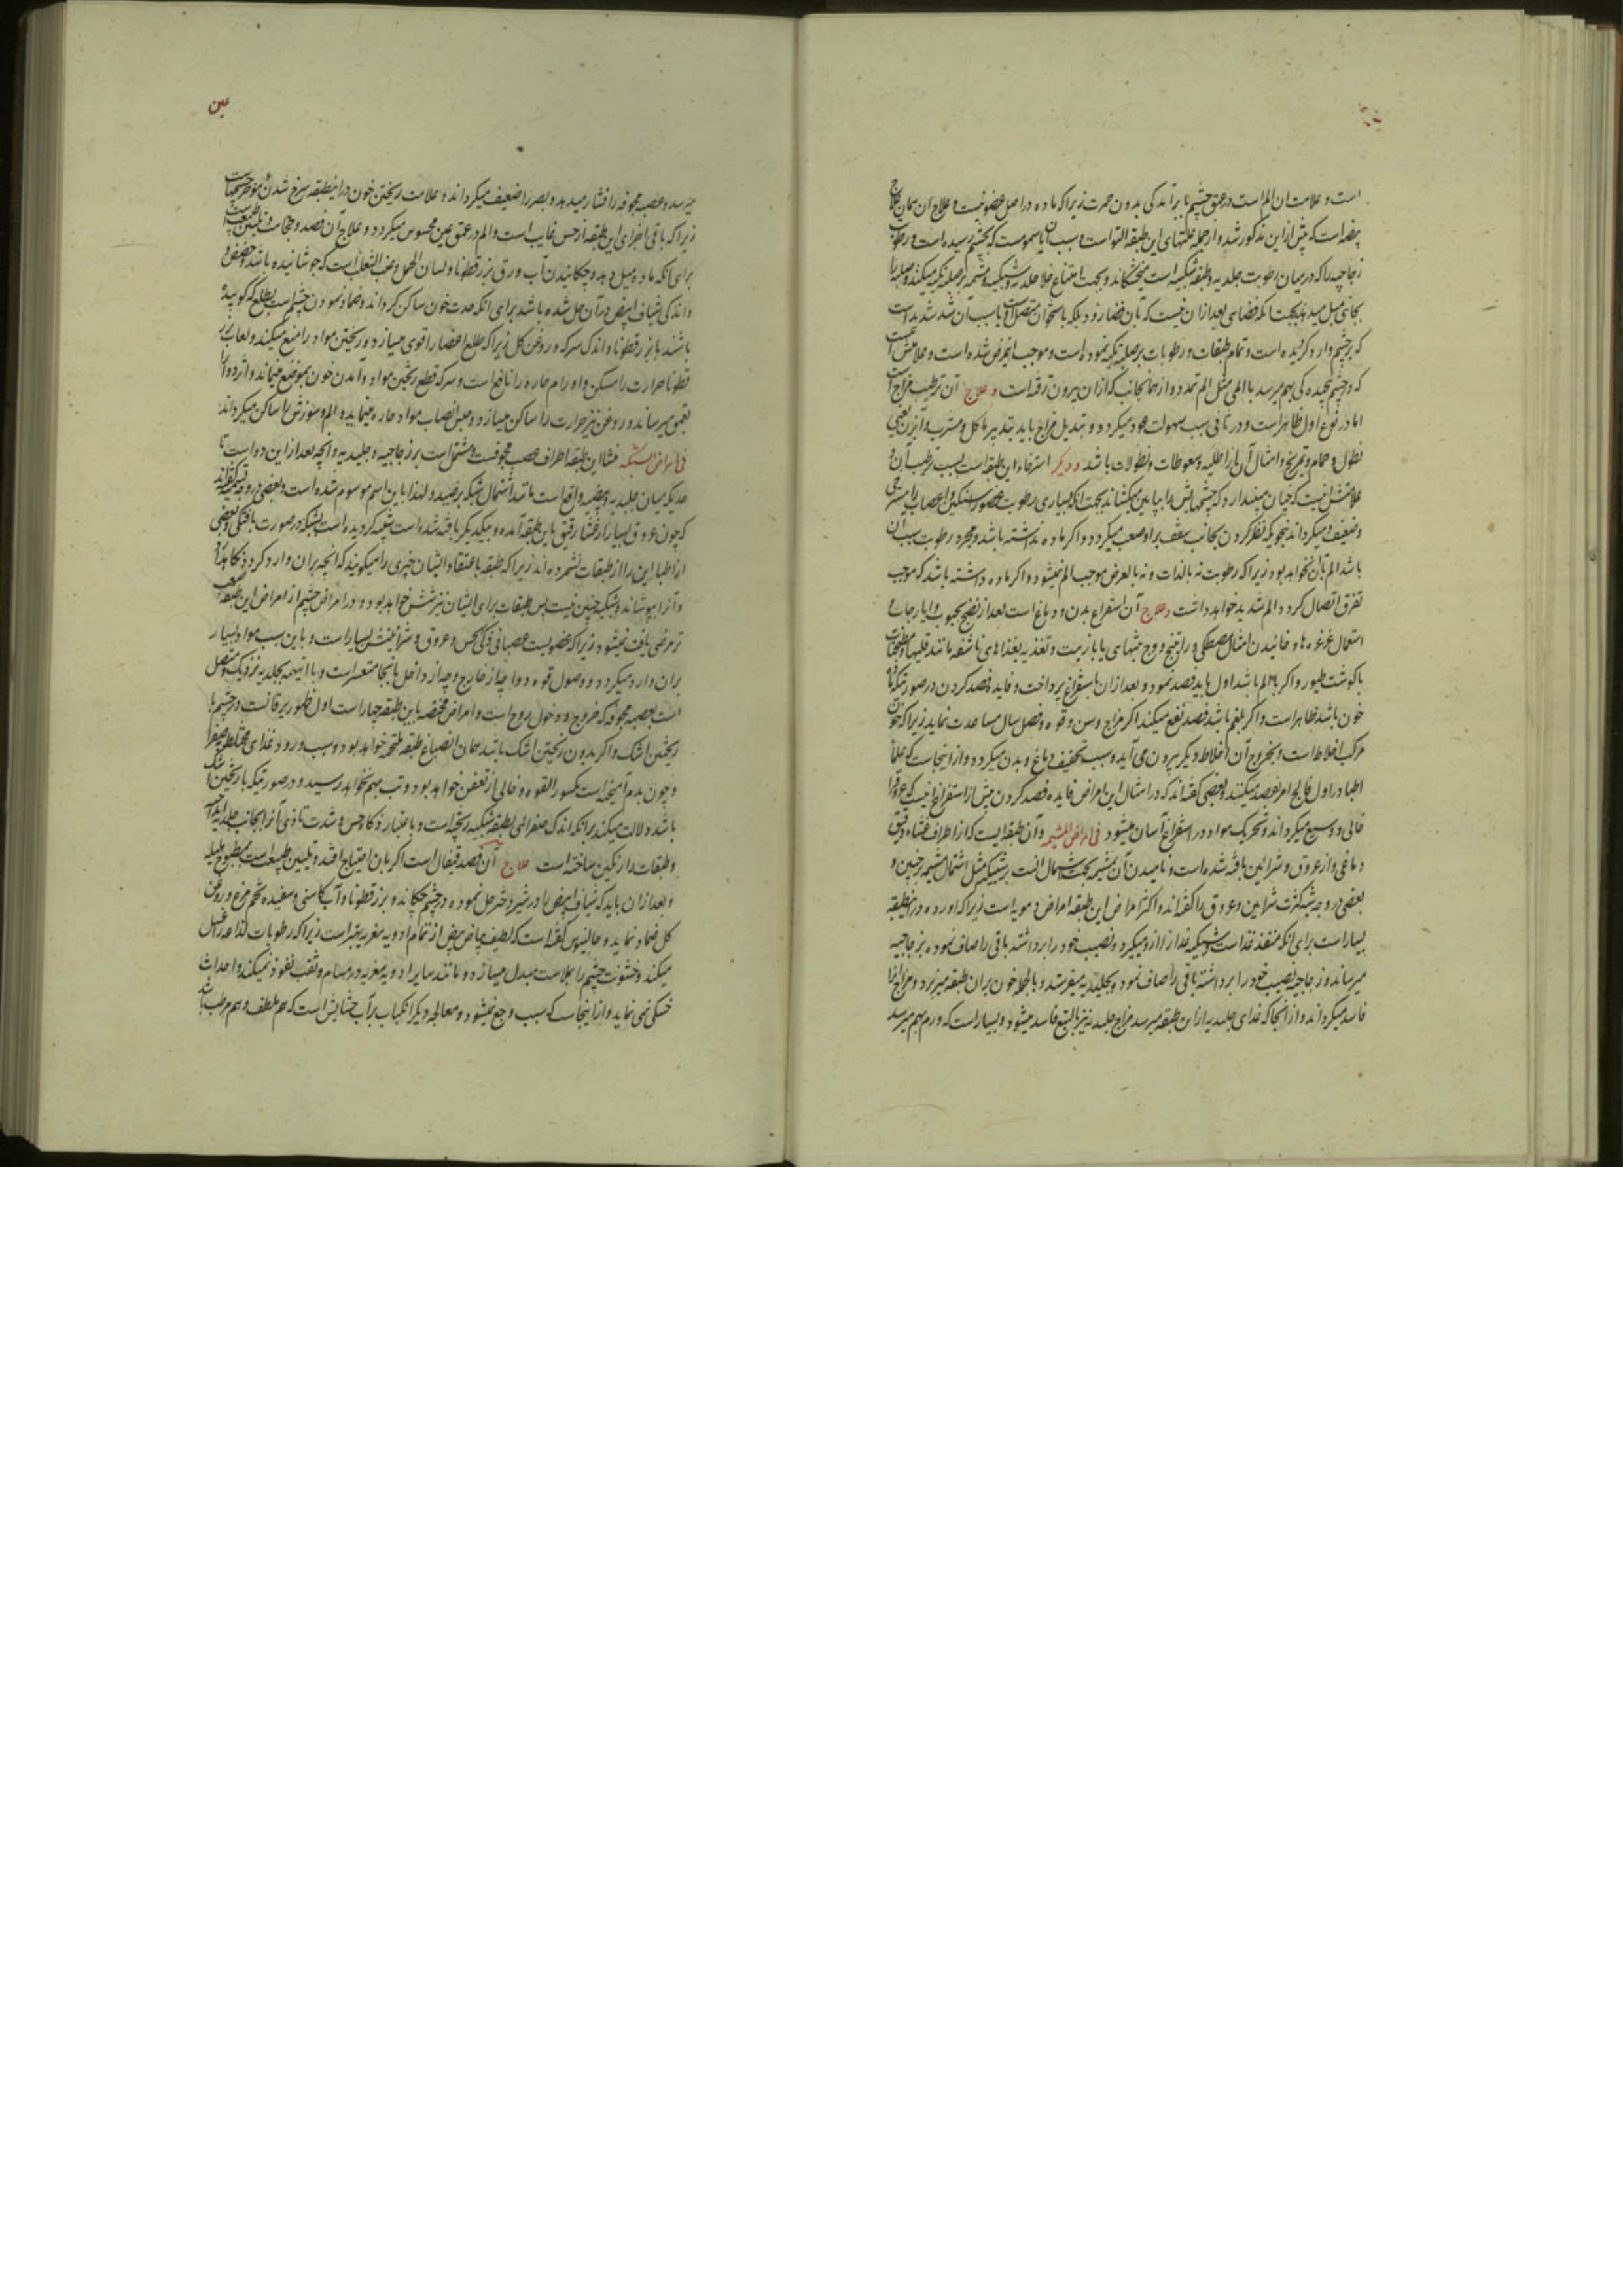 است و علامت ان الم است در عمق چشم با برآمدگی بدون حمرت زیرا که ماده در اصل عضو نیست و علاج ان همان علاج
بیضه است که پیش از این مذکور شد و از جمله علتهای این طبقه التوا است و سبب آن یا سموم است که بچشم رسیده است و رطوبت
زجاجیه را که در میان رطوبت جلیدیه و طبقه شبکیه است میخشکاند و بجهت امتناع خلا جلیدیه و شبکیه و مشیمه بر صلبه تکیه میکنند و صلبه را
بجائی میل میدهد بجهت آنکه فضای بعد از ان نیست که بآن فضا رود بلکه باستخوان متصل است و یا سبب آن شد شدید است
که بر چشم وارد گردیده است و تمام طبقات و رطوبات بر صلبه تکیه نموده است و موجب این مرض شده است و علامتش آنست
که در چشم بهم میرسد با المی مثل الم تمدد و از همان جانب که ازان بیرون رفته است و علاج آن ترطیب مزاج است
اما در نوع اول ظاهر است و در ثانی سبب سهولت عود میگردد و تبدیل مزاج باید بتدبیر ماکل و مشرب و آبزن یعنی
نطول و حمام و تمریخ و امثال آن از اطلیه و سعوطات و نطولات باشد و دیگر استرخاء این طبقه است بسبب ترطیب آن و
علامتش اینست که چنان میپندارد که چشمهایش را بپایین میکشاند بجهت آنکه بسیاری رطوبت عضو را سنگین و اعصاب را مسترخی
و ضعیف میگرداند بنحویکه نظر کردن بجانب سقف بر او صعب میگردد و اگر ماده نداشته باشد و مجرد رطوبت سبب آن
باشد الم بآن نخواهد بود زیرا که رطوبت نه بالذات و نه بالعرض موجب الم نمیشود و اگر ماده داشته باشد که موجب
تفرق اتصال گردد الم شدید خواهد داشت و علاج آن استفراغ بدن و دماغ است بعد از نضج بحبوب و ایارجات و
استعمال غرغره ها و خائیدن امثال مصطکی و راتینج و وج بتنهای یا با زبیب و تغذیه بغذاهای ناشفه مانند قلیها و مطبخات
با گوشت طیور و اگر با الم باشد اول باید فصد نمود و بعد ازان باستفراغ پرداخت و فایده فصد کردن در صورتیکه ماده
خون باشد ظاهر است و اگر بلغم باشد فصد نفع میکند اگر مزاج و سن و قوه و فصل سال مساعدت نماید زیرا که خون
مرکب اخلاط است و بخروج آن اخلاط دیگر بیرون می آید و سبب تخفیف دماغ و بدن میگردد و از اینجاست که علمآ
اطبا در اول فالج امر بفصد میکنند و بعضی گفته اند که در امثال این امراض فایده فصد کردن پیش از استفراغ اینست که عروق را
خالی و وسیع میگرداند و تحریک مواد در استفراغ آسان میشود فی امراض المشیمه و آن طبقه ایست که از اطراف غشاء رقیق
دماغی و از عروق و شرائین بافته شده است و نامیدن آن بمشیمه بجهت اشتمال آنست بر شبکیه مثل اشتمال مشیمه بر جنین و
بعضی در وجه تسمیه کثرت شرائین و عروق را گفته اند و اکثر امراض این طبقه امراض دمویه است زیرا که اورده در اینطبقه
بسیار است برای آنکه منفذ غذا است و شبکیه غذا را ازو میگیرد و نصیب خود را برداشته باقی را صاف نموده بزجاجیه
میرساند و زجاجیه نصیب خود را برداشته باقی را صاف نموده بجلیدیه میفرستد و بالجمله خون بران طبقه میریزد و مزاج آنرا
فاسد میگرداند و از آنجا که غذای جلیدیه ازان طبقه میرسد مزاج جلیدیه نیز بالتبع فاسد میشود و بسیار است که ورم بهم میرسد
عین
میرسد و عصبه مجوفه را فشار میدهد و بصر را ضعیف میگرداند و علامت ریختن خون در اینطبقه سرخ شدن مؤخر چشمهاست
زیرا که باقی اجزای این طبقه از حس غایب است و الم در عمق عین محسوس میگردد و علاج آن فصد و حجامت و تلیین طبیعت است
برای آنکه ماده میل دهد و چکانیدن آب ورق بزرقطونا و لسان الحمل و عنب الثعلب است که جوشانیده باشد و حضض
و اندکی شیاف ابیض در آن حل شده باشد برای آنکه حدت خون ساکن گرداند و ضماد نمودن چشم است بطلع که کوبیده
باشند با بزرقطونا و اندک سرکه و روغن گل زیرا که طلع اعضا را قوی میسازد و ریختن مواد را منع میکند و لعاب بزر
قطونا حرارت را مسکن و اورام حاره را نافع است و سرکه قطع ریختن مواد و آمدن خون بموضع مینماید و اثر دوا را
بعمق میرساند و روغن نیز حرارت را ساکن میسازد و حبس انصباب مواد حاره مینماید و الم و سوزش را ساکن میگرداند
فی امراض الشبکیه منشا این طبقه اطراف عصب مجوفست و مشتمل است بر زجاجیه و جلیدیه و آنچه بعد از این دو است تا
حدیکه میان جلیدیه و بیضیه واقع است مانند اشتمال شبکه بر صید و لهذا باین اسم موسوم شده است و بعضی در وجه تسمیه گفته اند
که چون عروق بسیار از غشاء رقیق باین طبقه آمده و بیکدیگر بافته شده است شبیه گردیده است بشبکه در صورت بافتگی و بعضی
از اطبا این را از طبقات نشمرده اند زیرا که طبقه باعتقاد ایشان چیزی را میگویند که آنچه بران وارد گردد نگاهدارد
و آنرا بپوشاند و شبکیه چنین نیست پس طبقات برای ایشان نیز شش خواهد بود و در امراض چشم از امراض این طبقه صعب
تر مرضی یافت نمیشود زیرا که عضویست عصبانی ذکی الحس و عروق و شرائینش بسیار است و باین سبب مواد بسیار
بران وارد میگردد و وصول قوه دوا چه از خارج و چه از داخل بانجا متعسر است و با اینهمه بجلیدیه نزدیک و متصل
است بعصبه مجوفه که خروج و دخول روح است و امراض مختصه باین طبقه چهار است اول ظهور یرقانست در چشم با
ریختن اشک و اگر بدون ریختن اشک باشد همان انصباغ طبقه ملتحمه خواهد بود و سبب ورود غذای مختلط بصفرا
و چون بدم آمیخته است مکسور القوه و خالی از تعفن خواهد بود و تب بهم نخواهد رسید و در صورتیکه با ریختن اشک
باشد دلالت میکند بر آنکه اندک صفرائی بطبقه شبکیه ریخته است و باعتبار ذکاء حس و شدت تاذی آنرا بجانب جلیدیه
و طبقات دافع رنگین ساخته است علاج آن فصد قیفال است اگر بان احتیاج افتد و تلیین طبیعت است بمطبوخ هلیله
و بعد ازان باید که شیاف ابیض را در شیر دختر حل نموده در چشم چکاند و بزرقطونا و آب کاسنی و سفیده تخم مرغ و روغن
گل ضماد نماید و جالینوس گفته است که لطیف بیاض بیض از تمام ادویه مغریه بهتر است زیرا که رطوبات لذاعه را غسل
میکند و خشونت چشم را بملاست مبدل میسازد و مانند سایر ادویه مغریه در مسام و ثقب نفوذ نمیکند و احداث
خشکی نمی نماید و از اینجاست که سبب وجع نمیشود و معالجه دیگر انکباب بر آب حشایش است که هم ملطف و هم مرطب باشد